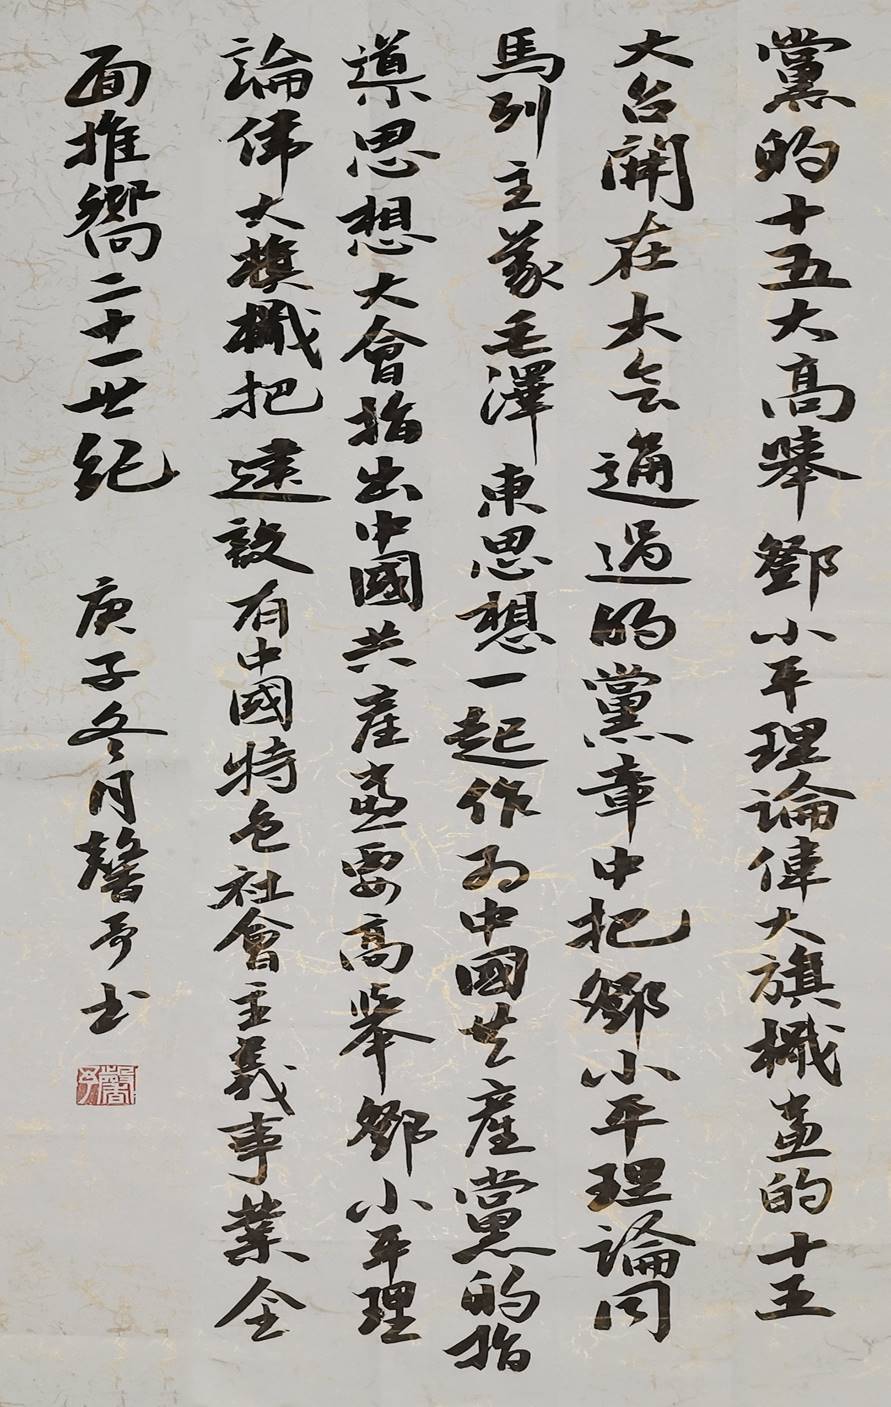 黨的十五大高舉鄧小平理論偉大旗幟黨的十五
大召開在大会通過的黨章中把鄧小平理論同
馬列主義毛澤東思想一起作为中國共產黨的指
導思想大會指出中國共產黨要高舉鄧小平理
論偉大旗幟把建設有中國特色社會主義事業全
面推嚮二十一世紀
庚子冬月馨予书
馨予